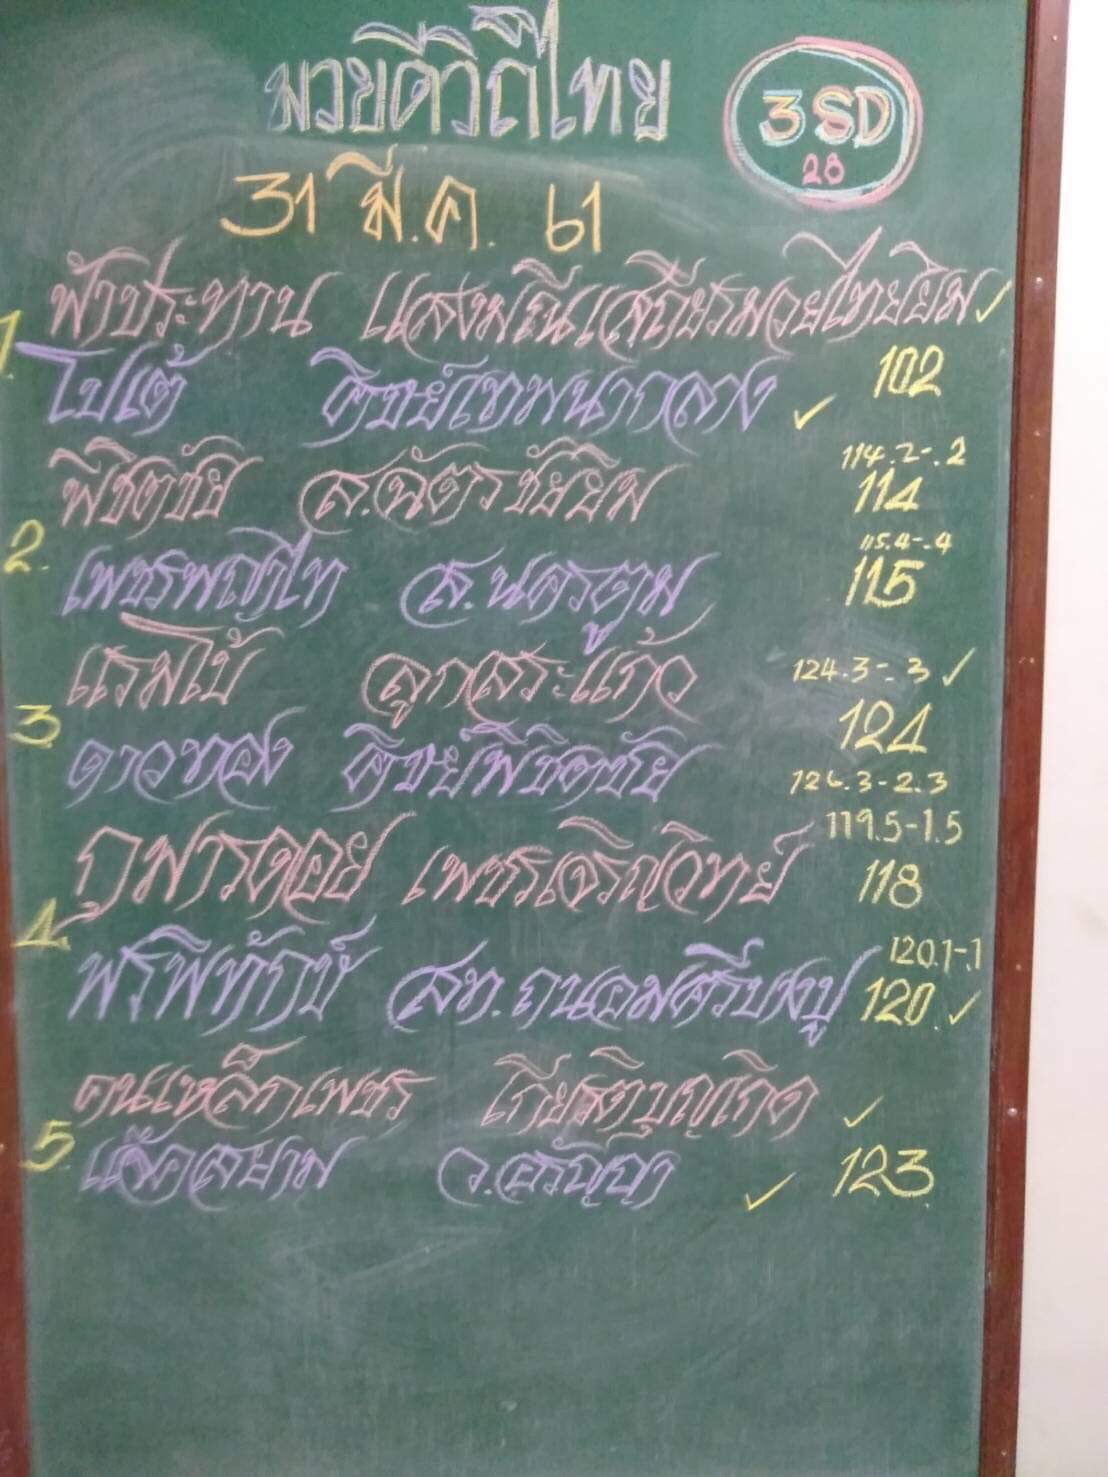 มวยดีวิถีไทย
3SD
28
31 มี.ค. 61
1. ฟ้าประทาน แสงมณีเสถียรมวยไทยยิม ✓
โปเต้ ศิษย์เทพนากลาง ✓ 102
114.2-.2
พิชิตชัย ส.ฉัตรชัยยิม 114
115.4-.4
2. เพชรพญาไท ส.นครตูม 115
แรมโบ้ ลูกสระแก้ว 124.3-.3 ✓
124
3. ดาวทอง ศิษย์พิชิตชัย
126.3-2.3
119.5-1.5
ภูฟารดอย เพชรเจริญวิทย์ 118
4. 120.1-.1
พรพิทักษ์ สท.ถนอมศรีบางปู 120 ✓
คนเหล็กเพชร เกียรติบุญเกิด ✓
5. เสือสยาม ว.อรัญญา ✓ 123